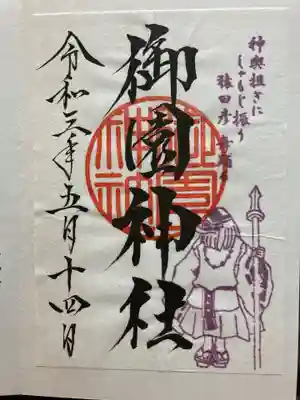 神輿担ぎに
しゃもじ振り
猿田彦
御園神社
令和三年五月十四日